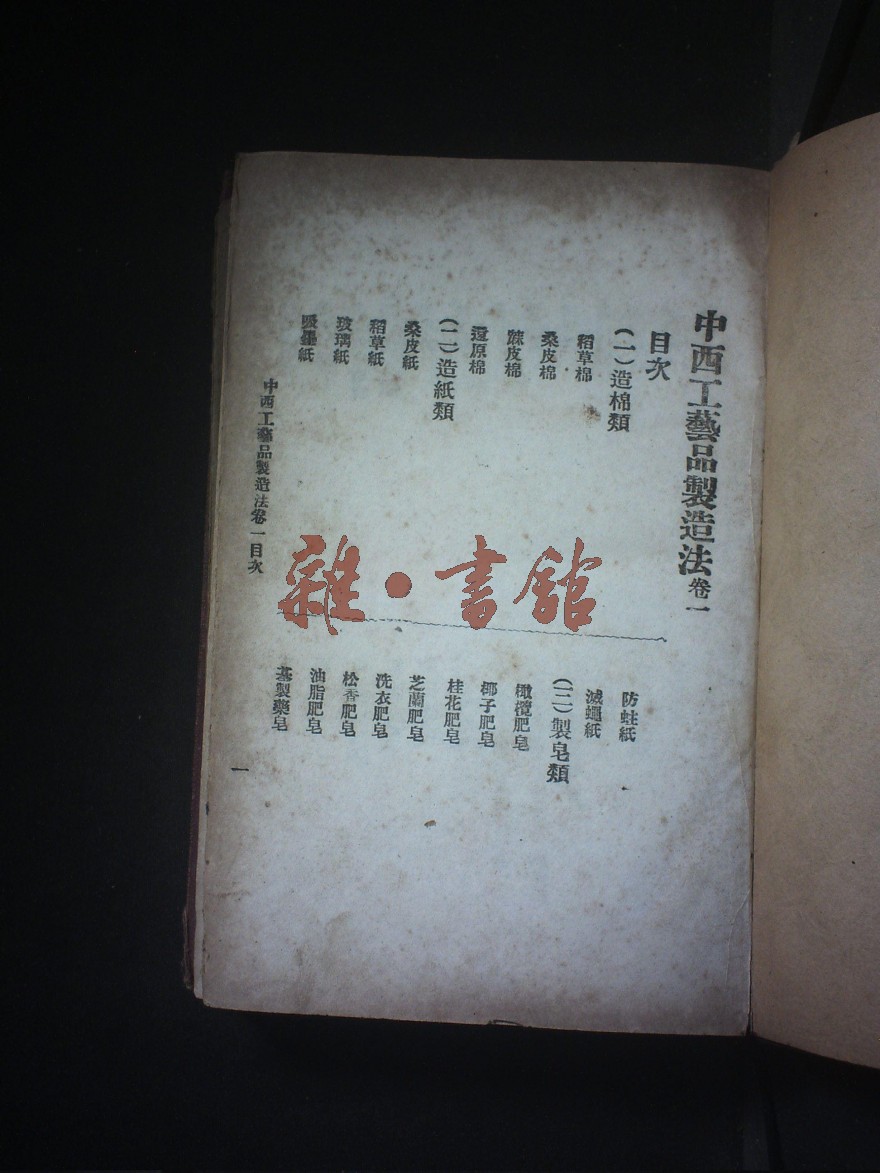 中西工藝品製造法卷一
目次
(一)造棉類
稻草棉
桑皮棉
蔴皮棉
還原棉
(二)造紙類
桑皮紙
稻草紙
玻璃紙
吸墨紙
防蛀紙
滅蠅紙
(三)製皂類
橄欖肥皂
椰子肥皂
桂花肥皂
芝蘭肥皂
洗衣肥皂
松香肥皂
油脂肥皂
基製藥皂
中西工藝品製造法卷一目次
一
雜·書館